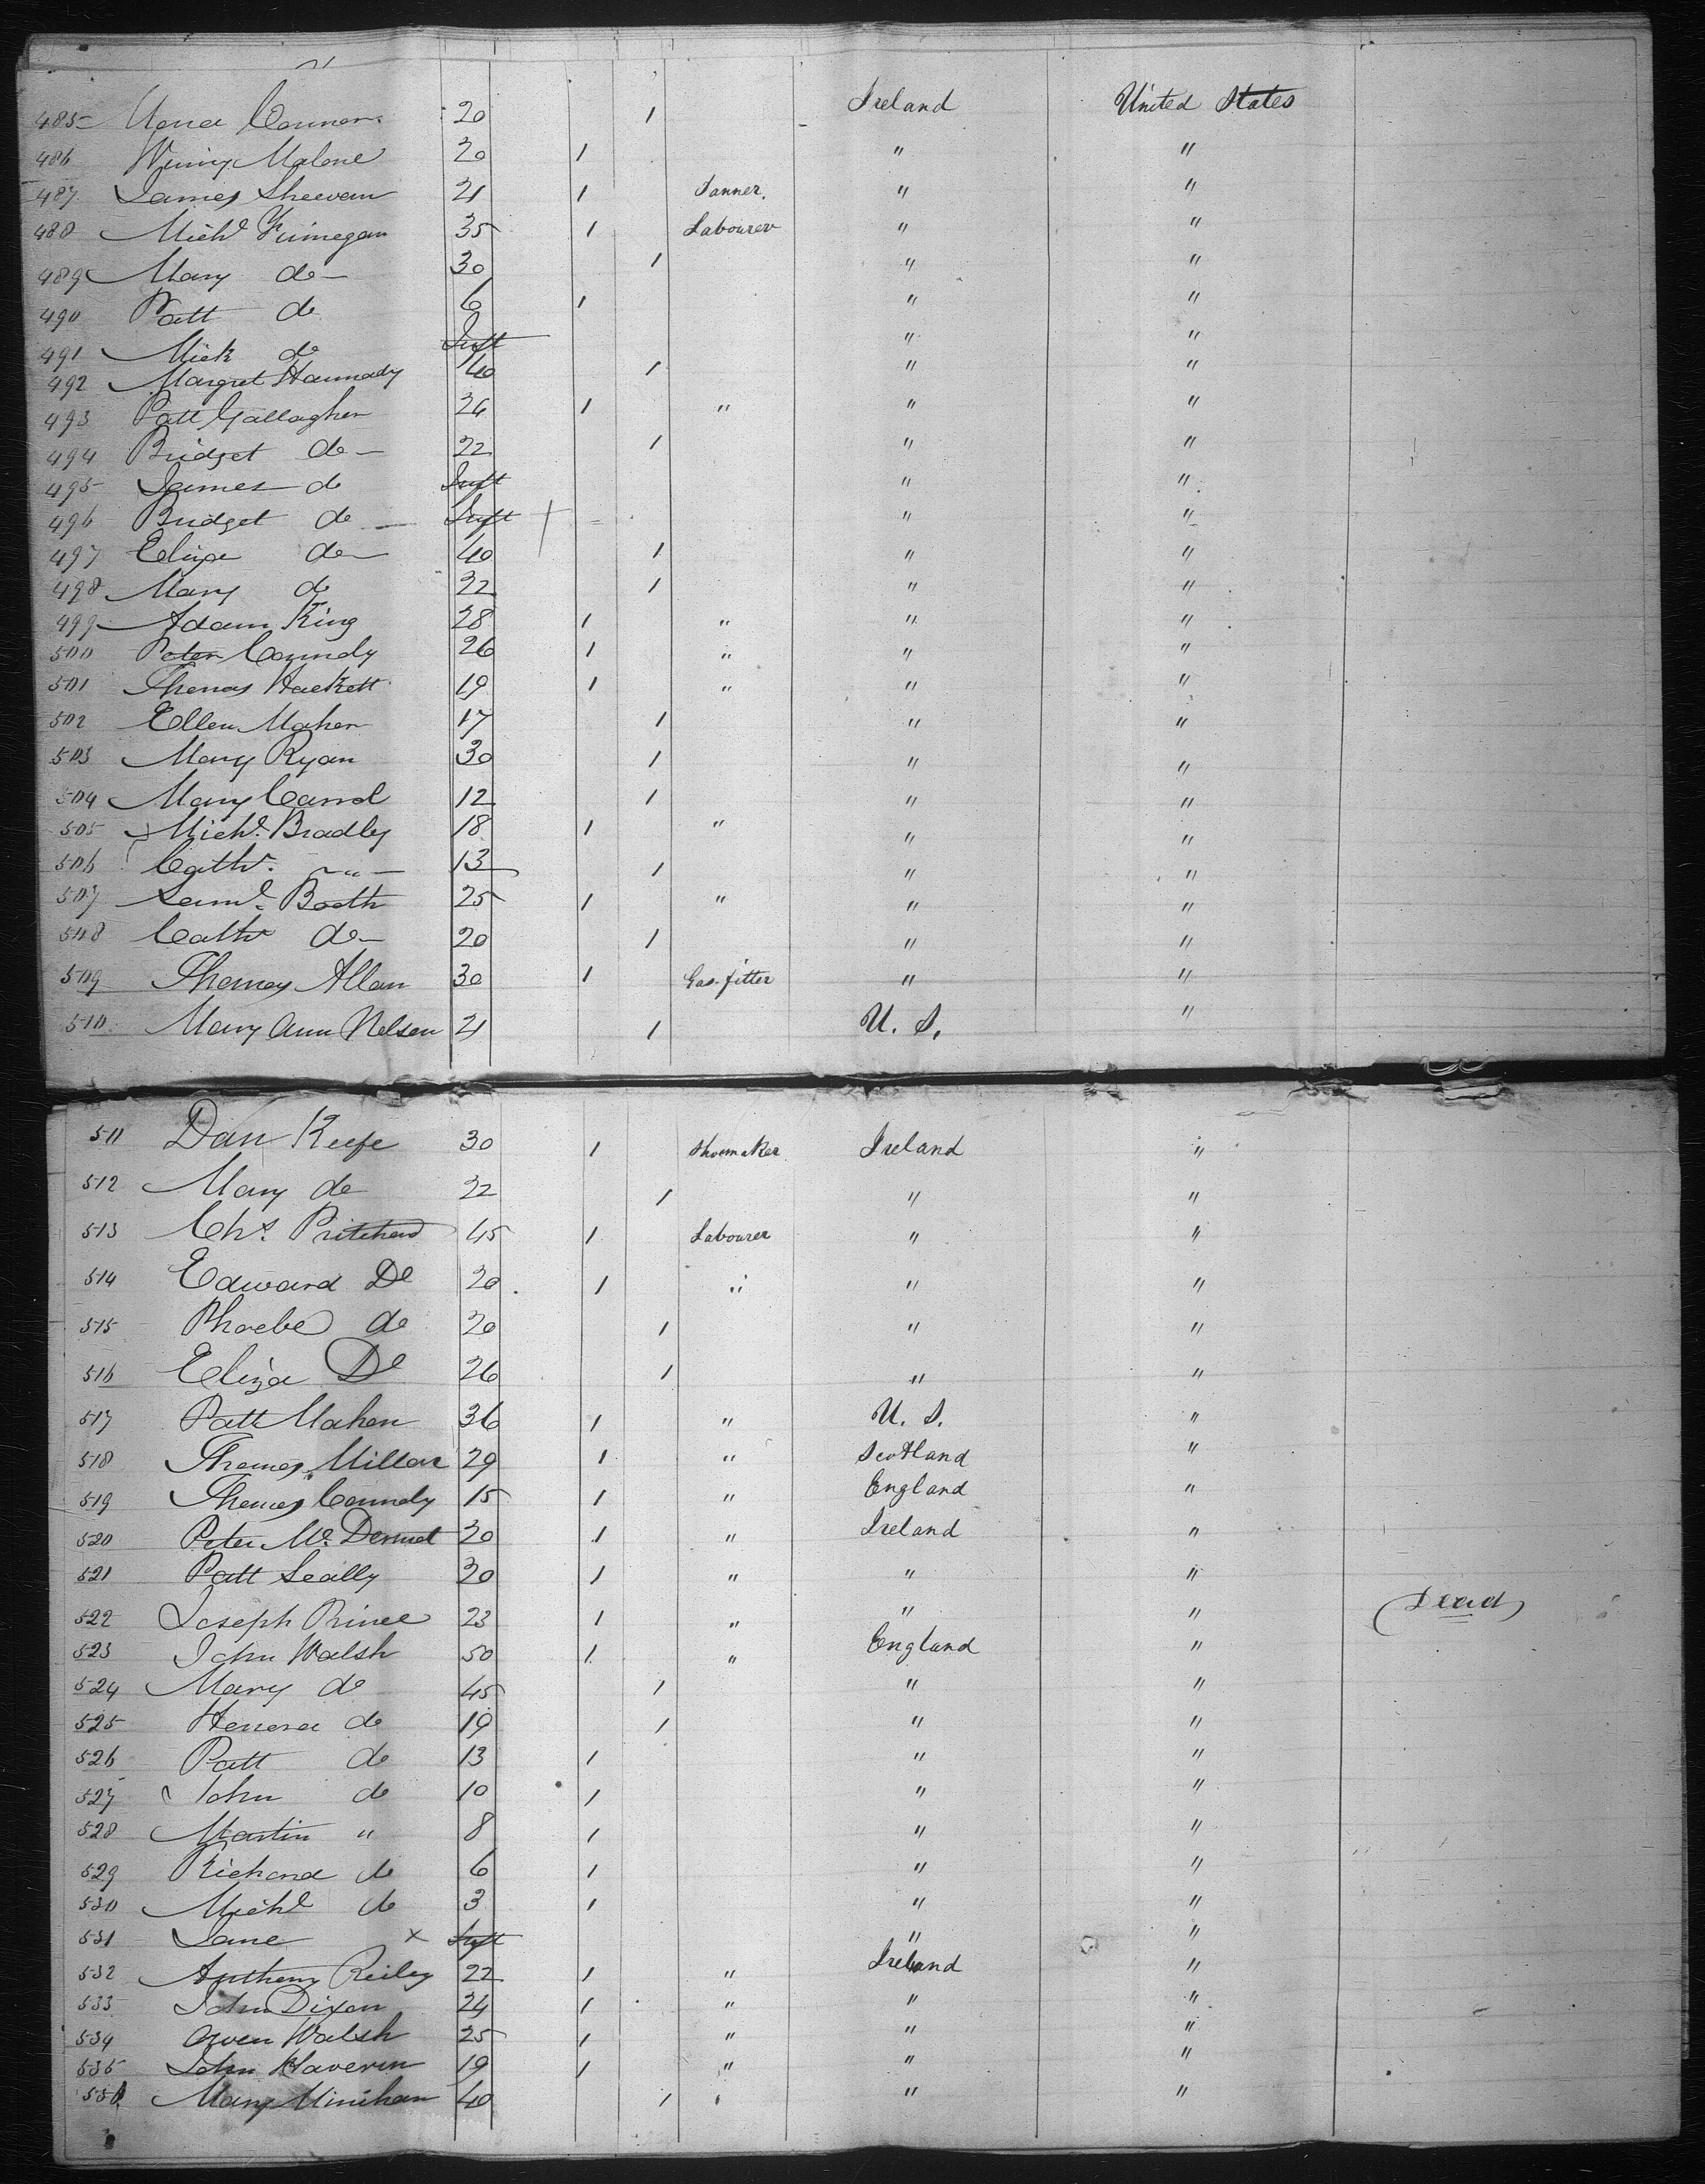 485 Honor Connor 20 1 Ireland United States
486 Winny Malone 20 1 " "
487 James Sheevan 21 1 Tanner. " "
488 Michl Finnegan 35 1 Labourer " "
489 Mary do 30 1 " "
490 Patt do 6 1 " "
491 Mick do Inft " "
492 Margret Hannady 40 1 " "
493 Patt Gallagher 24 1 " " "
494 Bridget do 22 1 " "
495 James do Inft " "
496 Bridget do Inft " "
497 Eliza do 40 1 " "
498 Mary do 22 1 " "
499 Adam King 28 1 " " "
500 Peter Connoly 26 1 " " "
501 Thomas Hackett 19 1 " " "
502 Ellen Maher 17 1 " "
503 Mary Ryan 30 1 " "
504 Mary Carrol 12 1 " "
505 Michl Bradley 18 1 " " "
506 Cathr " 13 1 " "
507 Saml Booth 25 1 " " "
508 Cathr do 20 1 " "
509 Thomas Allan 30 1 Gas-fitter " "
510 Mary Ann Nelson 21 1 U. S. "
511 Dan Keefe 30 1 Shoemaker Ireland "
512 Mary do 22 1 " "
513 Chs Pritchard 45 1 Labourer " "
514 Edward Do 20 1 " " "
515 Phoebe do 20 1 " "
516 Eliza Do 26 1 " "
517 Patt Maher 36 1 " U. S. "
518 Thomas Millar 29 1 " Scotland "
519 Thomas Connoly 15 1 " England "
520 Peter Mc Dermot 30 1 " Ireland "
521 Patt Scally 30 1 " " "
522 Joseph Prince 23 1 " " " Dead
523 John Walsh 50 1 " England "
524 Mary do 45 1 " "
525 Honora do 19 1 " "
526 Patt do 13 1 " "
527 John do 10 1 " "
528 Martin " 8 1 " "
529 Richard do 6 1 " "
530 Michl do 3 1 " "
531 Jane x Inft " "
532 Anthony Reiley 22 1 " Ireland "
533 John Dixon 24 1 " " "
534 Owen Walsh 25 1 " " "
535 John Haverin 19 1 " " "
536 Mary Minihan 40 1 " "